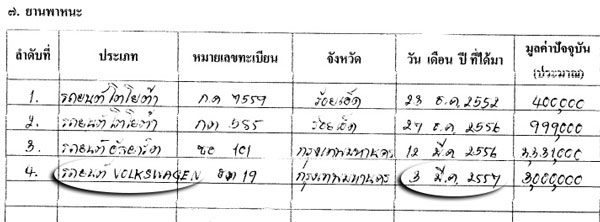 ๗. ยานพาหนะ
ลำดับที่ ประเภท หมายเลขทะเบียน จังหวัด วัน เดือน ปี ที่ได้มา มูลค่าปัจจุบัน
(ประมาณ)
1. รถยนต์ โตโยต้า กค 7559 ร้อยเอ็ด 23 ธ.ค. 2552 400,000
2. รถยนต์ โตโยต้า 585 ร้อยเอ็ด 27 ธ.ค. 2556 999,000
3. รถยนต์ 101 กรุงเทพมหานคร 12 มี.ค. 2556 3,331,000
4. รถยนต์ VOLKSWAGEN 19 กรุงเทพมหานคร 3 มี.ค. 2557 3,000,000